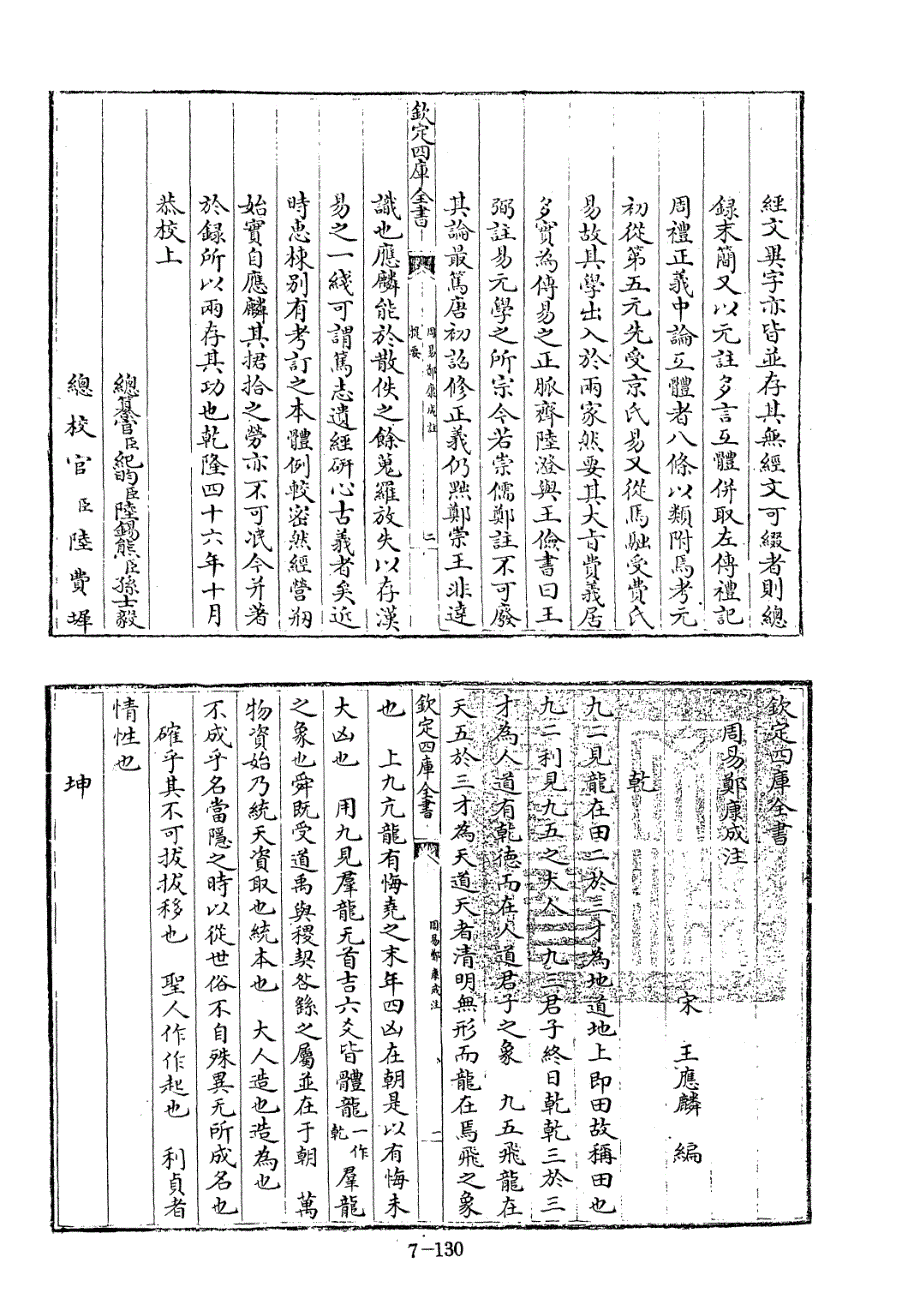 經文異字亦皆並存其無經文可綴者則總
録末簡又以元註多言互體併取左傳禮記
周禮正義中論互體者八條以類附焉考元
初從第五元先受京氏易又從馬融受費氏
易故其學出入於兩家然要其大㫖費義居
多實為傳易之正脈齊陸澄與王儉書曰王
弼註易元學之所宗今若崇儒鄭註不可廢
其論最篤唐初詔修正義仍黜鄭崇王非達
欽定四庫全書
周易鄭康成註
提要
二
識也應麟能於散佚之餘蒐羅放失以存漢
易之一綫可謂篤志遺經研心古義者矣近
時恵棟别有考訂之本體例較密然經營剏
始實自應麟其捃拾之勞亦不可泯今并著
於録所以兩存其功也乾隆四十六年十月
恭校上
總纂官臣紀昀臣陸錫熊臣孫士毅
總校官臣陸費墀
欽定四庫全書
周易鄭康成注
宋 王應麟 編
乾
九二見龍在田二於三才為地道地上即田故稱田也
九二利見九五之大人 九三君子終日乾乾三於三
才為人道有乾德而在人道君子之象 九五飛龍在
天五於三才為天道天者清明無形而龍在焉飛之象
欽定四庫全書
周易鄭康成注
也 上九亢龍有悔堯之末年四凶在朝是以有悔未
大凶也 用九見羣龍无首吉六爻皆體龍一作乾羣龍
之象也舜既受道禹與稷契咎繇之屬並在于朝 萬
物資始乃統天資取也統本也 大人造也造為也
不成乎名當隱之時以從世俗不自殊異无所成名也
確乎其不可拔拔移也 聖人作作起也 利貞者
情性也
坤
7-130